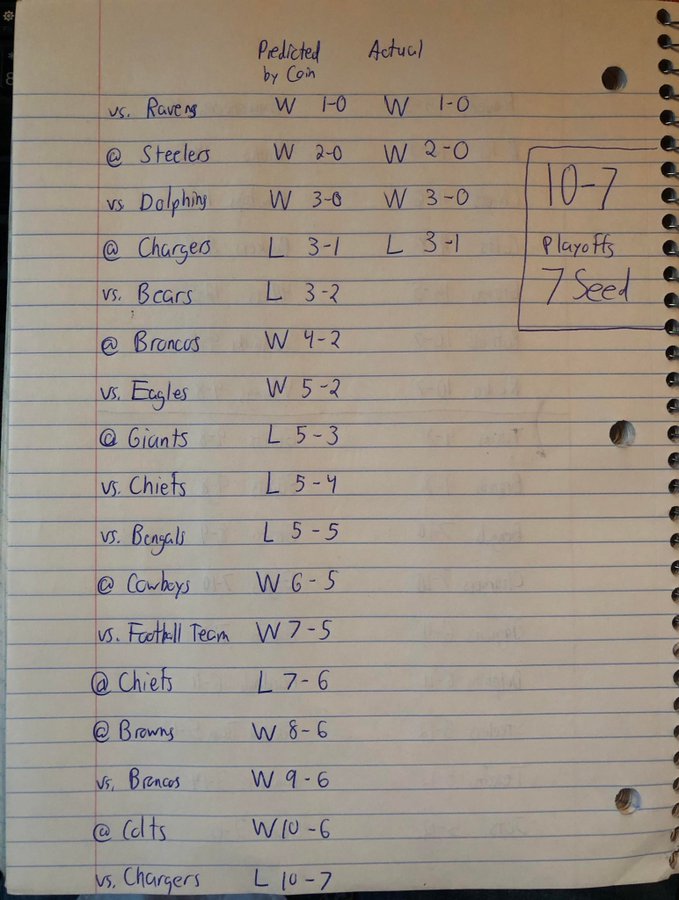 Predicted by Coin Actual
vs. Ravens W 1-0 W 1-0
@ Steelers W 2-0 W 2-0
vs. Dolphins W 3-0 W 3-0
@ Chargers L 3-1 L 3-1
vs. Bears L 3-2
@ Broncos W 4-2
vs. Eagles W 5-2
@ Giants L 5-3
vs. Chiefs L 5-4
vs. Bengals L 5-5
@ Cowboys W 6-5
vs. Football Team W 7-5
@ Chiefs L 7-6
@ Browns W 8-6
vs. Broncos W 9-6
@ Colts W 10-6
vs. Chargers L 10-7
10-7
Playoffs
7 Seed